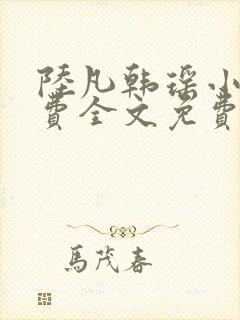 陸凡韩瑶小
費全文免費
馬茂春